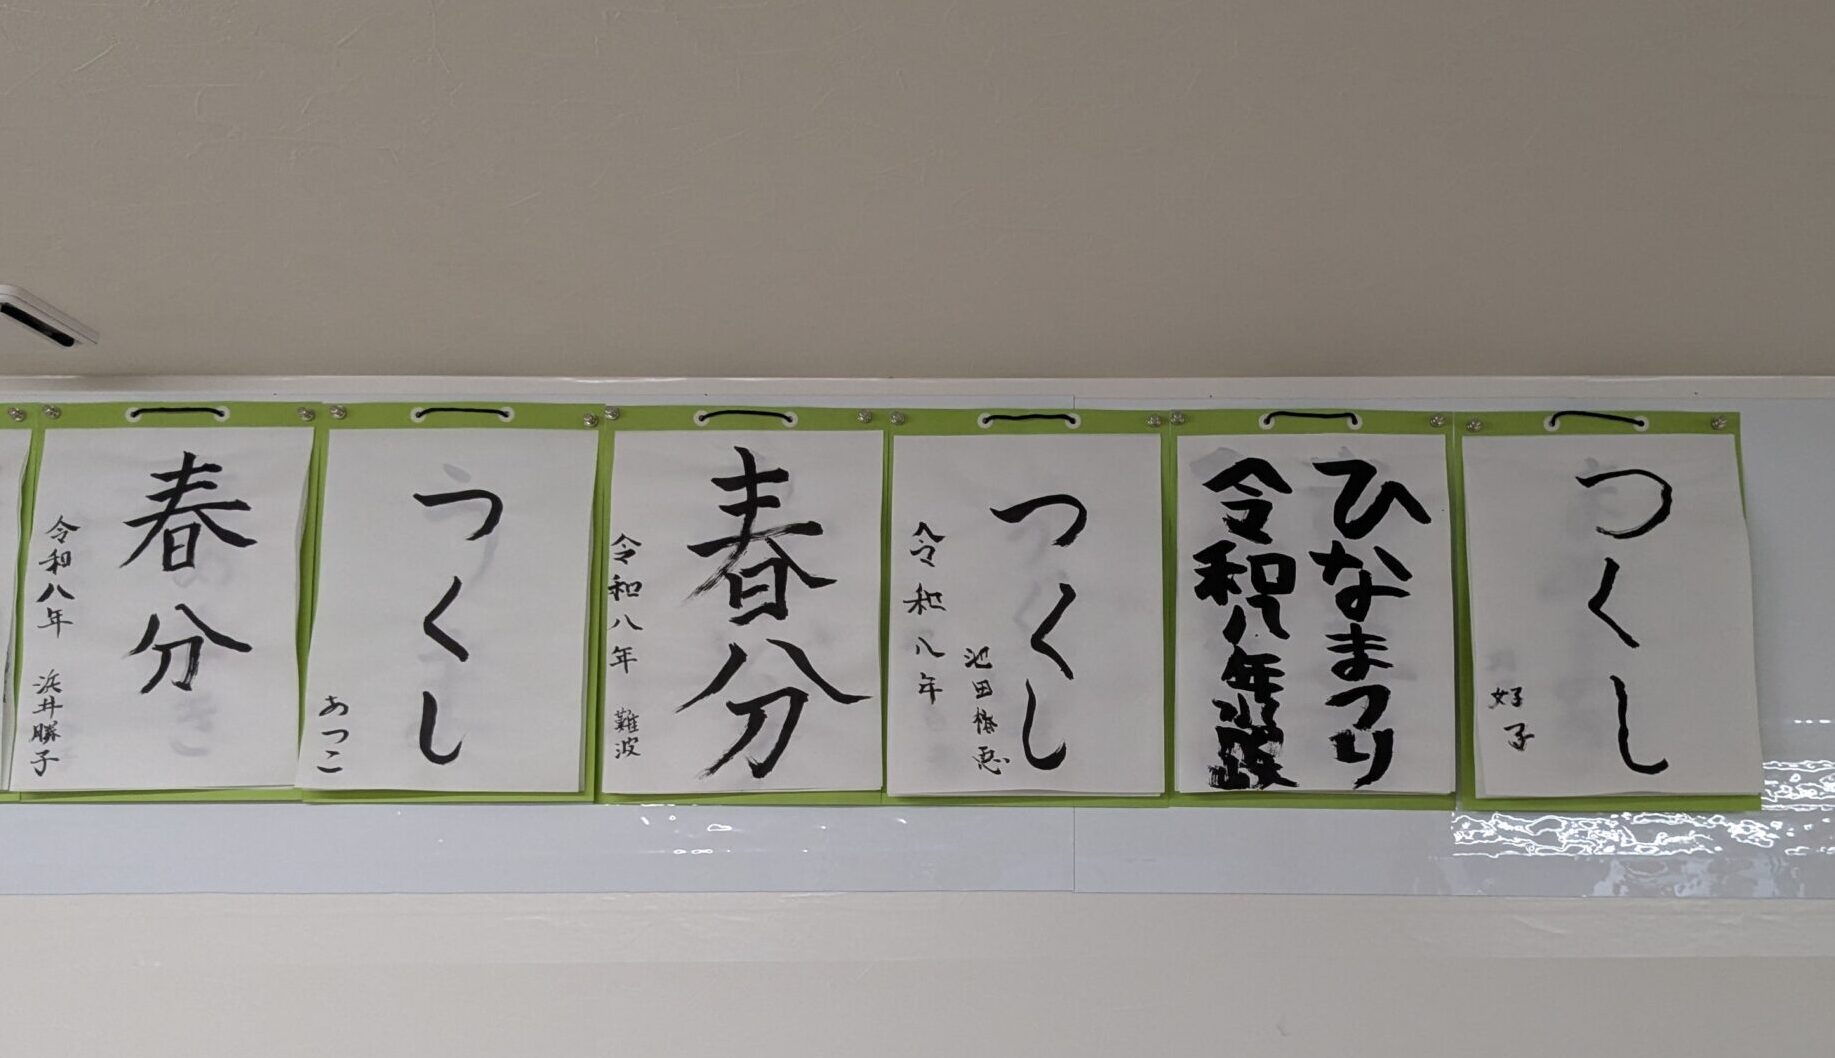 春分
令和八年 浜井勝子
つくし
あつこ
春分
令和八年 難波
つくし
池田
令和八年
ひなまつり
令和八年
つくし
好子